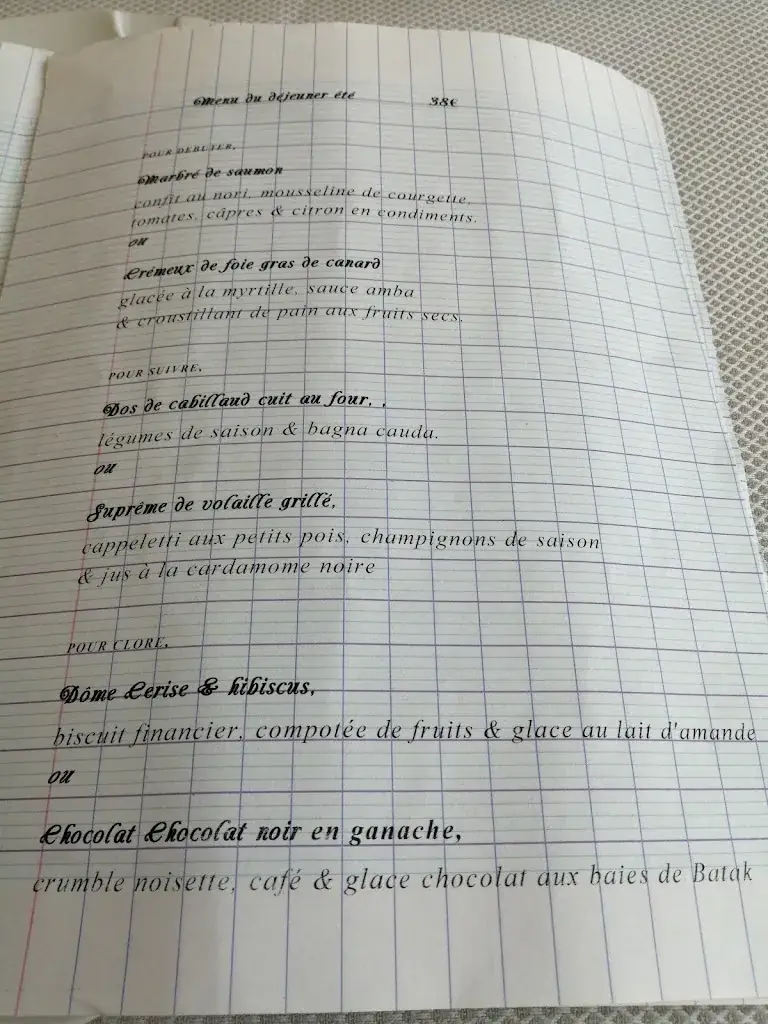 Menu du déjeuner été 38€
POUR DEBUTER,
Marbré de saumon
confit au nori, mousseline de courgette,
tomates, câpres & citron en condiments.
ou
Crémeux de foie gras de canard
glacée à la myrtille, sauce amba
& croustillant de pain aux fruits secs.
POUR SUIVRE,
Dos de cabillaud cuit au four, ,
légumes de saison & bagna cauda.
ou
Suprême de volaille grillé,
cappeletti aux petits pois, champignons de saison
& jus à la cardamome noire
POUR CLORE,
Dôme Cerise & hibiscus,
biscuit financier, compotée de fruits & glace au lait d'amande
ou
Chocolat Chocolat noir en ganache,
crumble noisette, café & glace chocolat aux baies de Batak